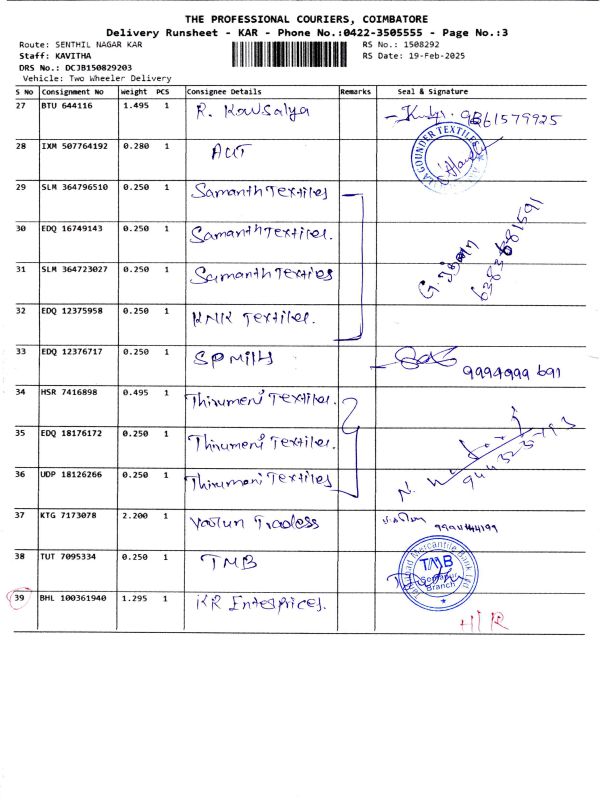 THE PROFESSIONAL COURIERS, COIMBATORE
Delivery Runsheet - KAR - Phone No.:0422-3505555 - Page No.:3
Route: SENTHIL NAGAR KAR RS No.: 1508292
Staff: KAVITHA RS Date: 19-Feb-2025
DRS No.: DCJB150829203
Vehicle: Two Wheeler Delivery
S No Consignment No Weight PCS Consignee Details Remarks Seal & Signature
27 BTU 644116 1.495 1 R. Kowsalya 9861579925
28 IXM 507764192 0.280 1 GOUNDER TEXTILES
29 SLM 364796510 0.250 1 Samanth Textiles
30 EDQ 16749143 0.250 1 Samanth Textiles.
31 SLM 364723027 0.250 1 Samanth Textiles 6383681591
32 EDQ 12375958 0.250 1 KNK Textiles.
33 EDQ 12376717 0.250 1 SP Mills 9994999 691
34 HSR 7416898 0.495 1 Thirumeni Textiles.
35 EDQ 18176172 0.250 1 Thirumeni Textiles.
36 UDP 18126266 0.250 1 Thirumeni Textiles
37 KTG 7173078 2.200 1 Varun Tradess
38 TUT 7095334 0.250 1 TMB Mercantile Bank Ltd TMB Branch
39 BHL 100361940 1.295 1 KR Entesprices.